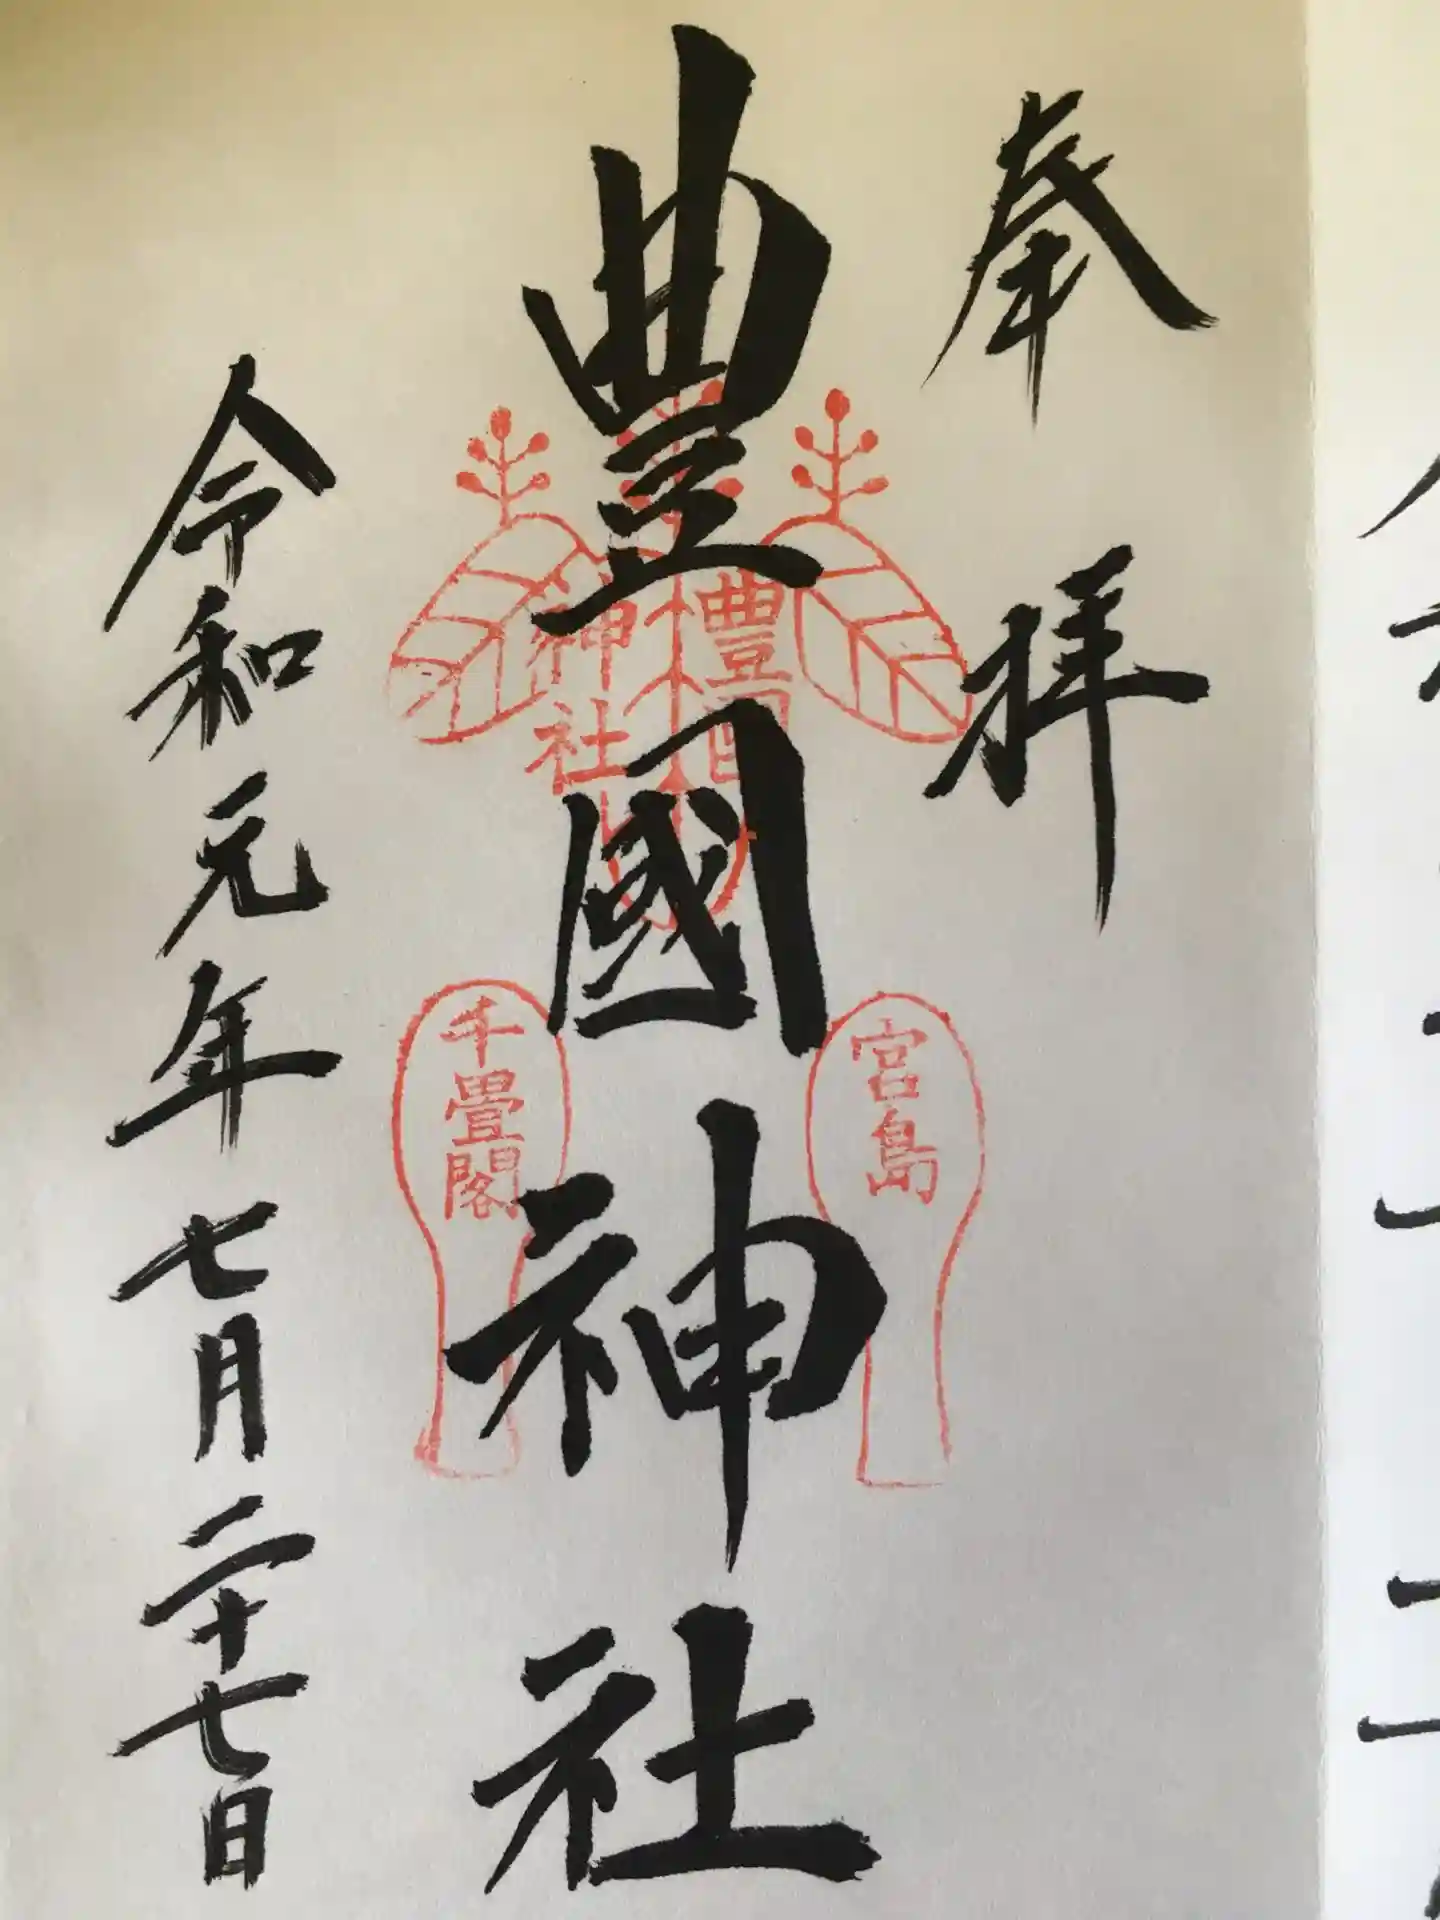 奉拝
豊國神社
豊國
神社
宮島
千畳閣
令和元年七月二十七日